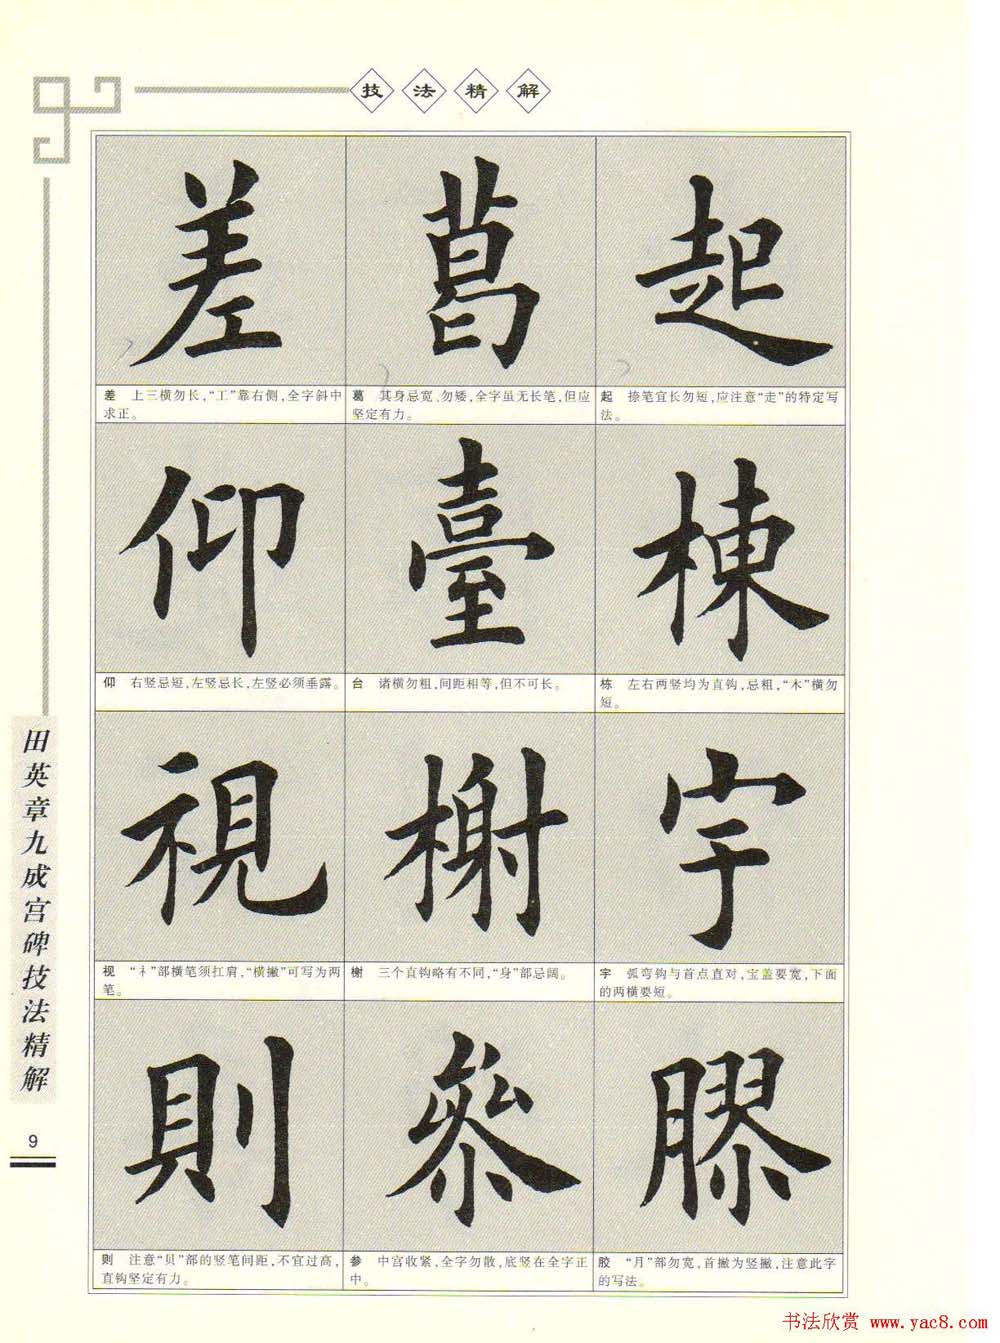 技法精解
差 葛 起
差　上三横勿长，“工”靠右侧，全字斜中
求正。
葛　其身忌宽、勿矮，全字虽无长笔，但应
坚定有力。
起　捺笔宜长勿短，应注意“走”的特定写
法。
仰 臺 棟
仰　右竖忌短，左竖忌长，左竖必须垂露。
台　诸横勿粗，间距相等，但不可长。
栋　左右两竖均为直钩，忌粗，“木”横勿
短。
視 榭 宇
视　“礻”部横笔须扛肩，“横撇”可写为两
笔。
榭　三个直钩略有不同，“身”部忌阔。
宇　弧弯钩与首点直对，宝盖要宽，下面
的两横要短。
則 參 膠
则　注意“贝”部的竖笔间距，不宜过高，
直钩坚定有力。
参　中宫收紧，全字勿散，底竖在全字正
中。
胶　“月”部勿宽，首撇为竖撇，注意此字
的写法。
田英章九成宫碑技法精解
9
书法欣赏 www.yac8.com